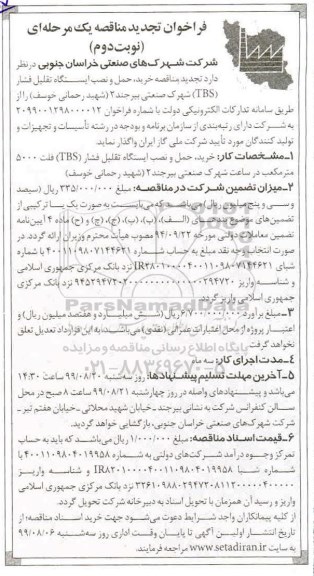 فراخوان تجدید مناقصه یک مرحله‌ای
(نوبت دوم)
شرکت شهرک‌های صنعتی خراسان جنوبی در نظر
دارد تجدید مناقصه خرید، حمل و نصب ایستگاه تقلیل فشار
(TBS) شهرک صنعتی بیرجند ۲ (شهید رحمانی خوسف) را از
طریق سامانه تدارکات الکترونیکی دولت با شماره فراخوان ۲۰۹۹۰۰۱۲۹۸۰۰۰۰۱۲
به شرکت دارای رتبه‌بندی از سازمان برنامه و بودجه در رشته تأسیسات و تجهیزات و
تولید کنندگان مورد تأیید شرکت ملی گاز ایران واگذار نماید.
۱-مشخصات کار: خرید، حمل و نصب ایستگاه تقلیل فشار (TBS) فلت ۵۰۰۰
مترمکعب در ساعت شهرک صنعتی بیرجند ۲ (شهید رحمانی خوسف)
۲-میزان تضمین شرکت در مناقصه: مبلغ ۳۳۵/۰۰۰/۰۰۰ ریال (سیصد
و سی و پنج میلیون ریال) می‌باشد که می‌بایست به صورت یک یا ترکیبی از
تضمین‌های موضوع بندهای (الف)، (ب)، (پ)، (ج)، (ح) و (خ) ماده ۴ آیین‌نامه
تضمین معاملات دولتی مورخه ۹۴/۰۹/۲۲ مصوب هیأت محترم وزیران ارائه گردد. در
صورت انتخاب وجه نقد مبلغ به حساب شماره ۴۰۰۱۱۰۹۸۰۷۱۴۴۶۲۱ با شماره
شبای نزد بانک مرکزی جمهوری اسلامی
و شناسه واریز نزد بانک مرکزی
جمهوری اسلامی واریز گردد.
۳-مبلغ برآورد ۶/۷۰۰/۰۰۰/۰۰۰ ریال (شش میلیارد و هفتصد میلیون ریال) و
اعتبار پروژه از محل اعتبارات عمرانی (نقدی) می‌باشد. به این قرارداد تعدیل تعلق
نخواهد گرفت.
۴-مدت اجرای کار: سه ماه
۵-آخرین مهلت تسلیم پیشنهادها: روز سه‌شنبه ۹۹/۰۸/۲۰ ساعت ۱۴:۳۰
می‌باشد و پیشنهادهای واصله در روز چهارشنبه ۹۹/۰۸/۲۱ ساعت ۸ صبح در محل
سالن کنفرانس شرکت به نشانی بیرجند - خیابان شهید محلاتی - خیابان هفتم تیر -
شرکت شهرک‌های صنعتی خراسان جنوبی، بازگشایی خواهد گردید.
۶-قیمت اسناد مناقصه: مبلغ ۱/۰۰۰/۰۰۰ ریال می‌باشد که باید به حساب
تمرکز وجوه درآمد شرکت‌های دولتی به شماره ۴۰۰۱۱۰۹۸۰۴۰۱۹۹۵۸ با
شماره شبا IR۸۲۰۱۰۰۰۰۴۰۰۱۱۰۹۸۰۴۰۱۹۹۵۸ و شناسه واریز
نزد بانک مرکزی جمهوری اسلامی
واریز و رسید آن همزمان با تحویل اسناد به دبیرخانه شرکت تحویل گردد.
از کلیه پیمانکاران واجد شرایط دعوت می‌شود جهت خرید اسناد مناقصه؛ از
تاریخ انتشار اولین آگهی تا پایان وقت اداری روز سه‌شنبه ۹۹/۰۸/۰۶ به
سایت www.setadiran.ir مراجعه فرمایند.
ParsNamadData
پایگاه اطلاع رسانی مناقصه و مزایده
۰۲۱-۸۸۳۴۹۶۷۰